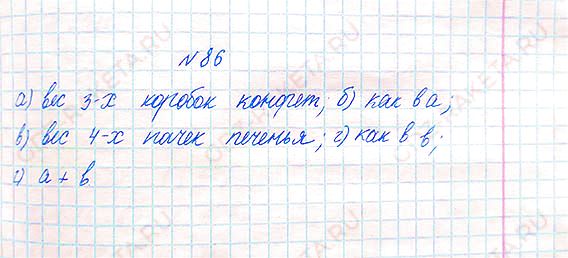 N 86
а) вес 3-х коробок конфет; б) как в а;
в) вес 4-х пачек печенья; г) как в в;
а + в